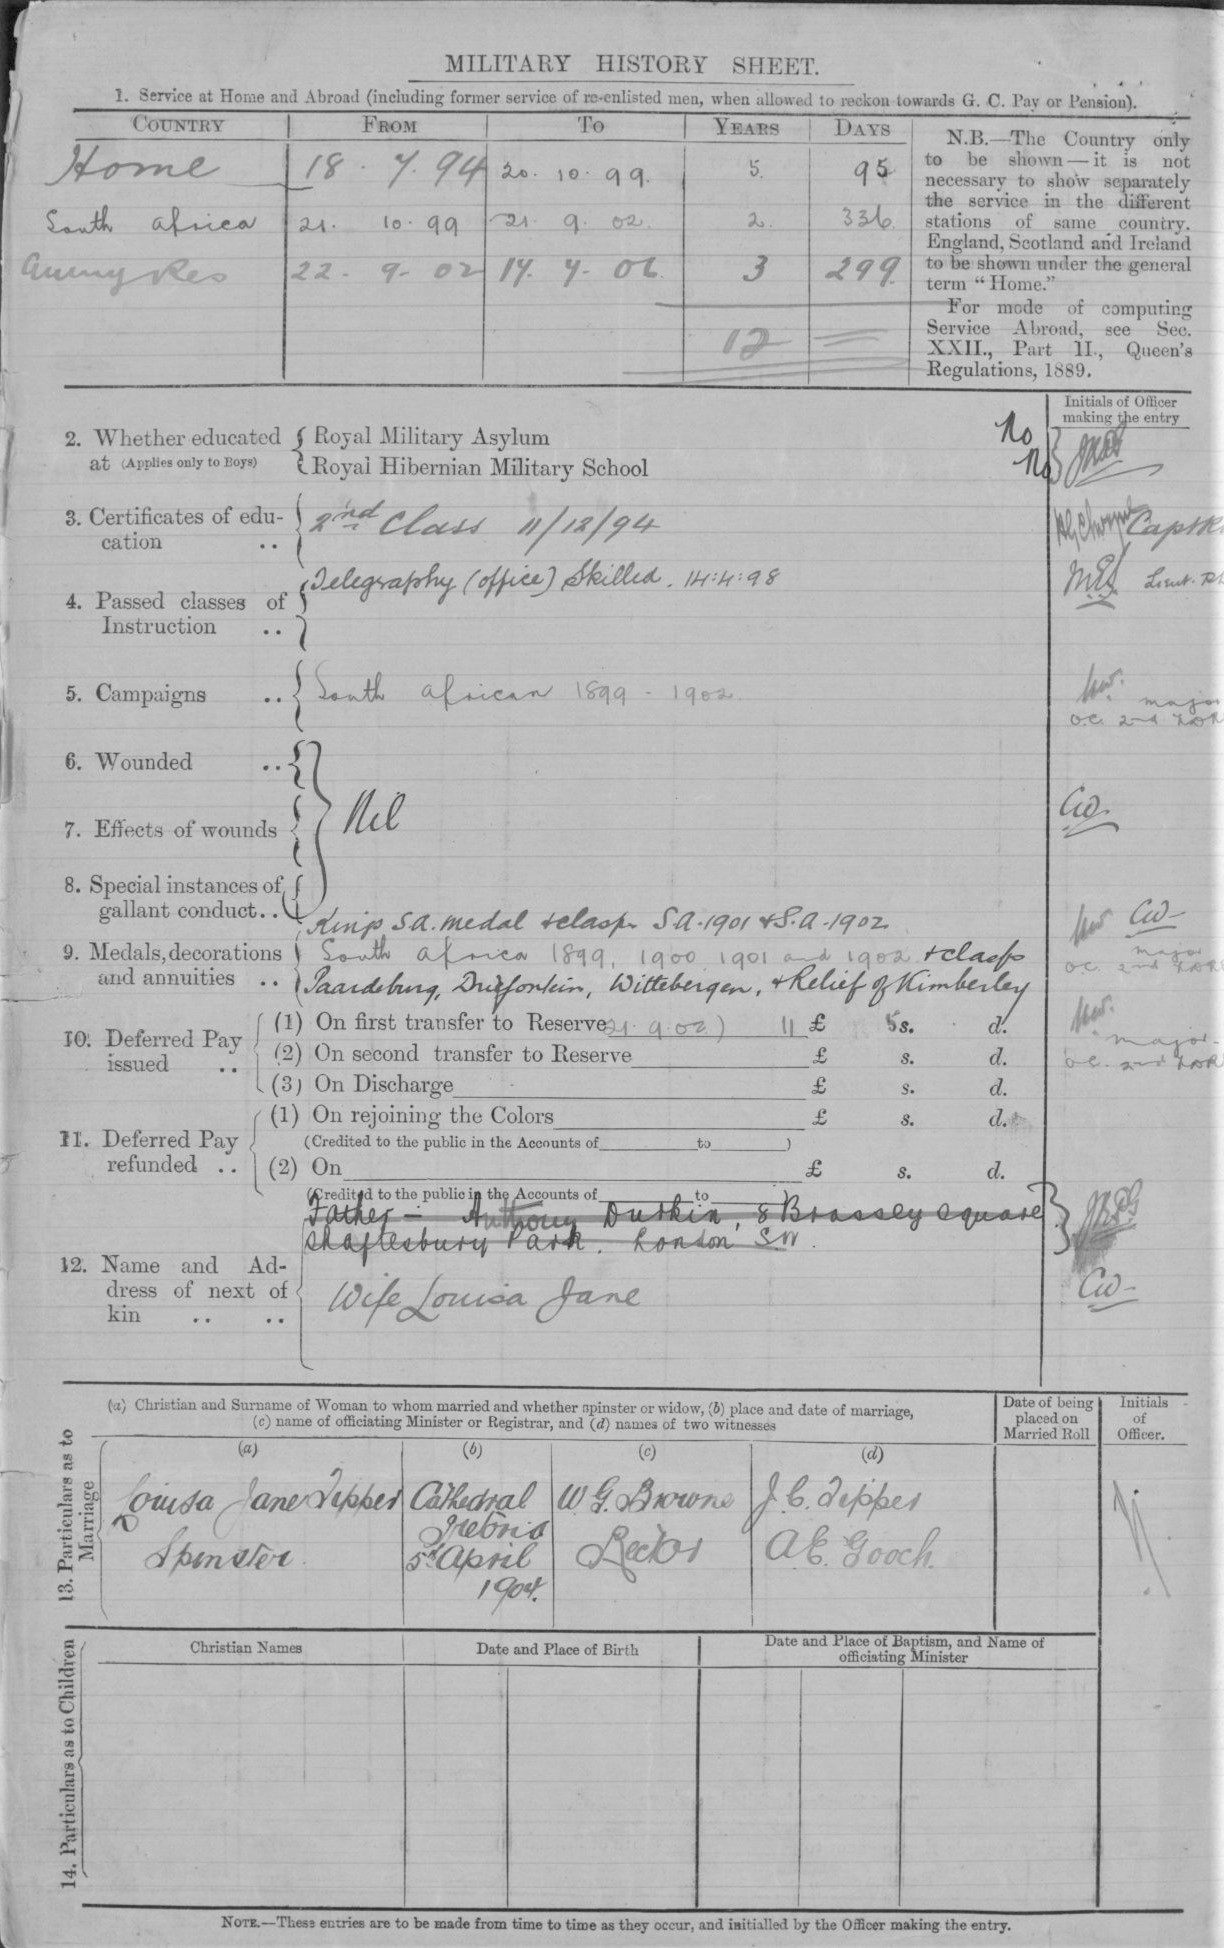 MILITARY HISTORY SHEET.
1. Service at Home and Abroad (including former service of re-enlisted men, when allowed to reckon towards G. C. Pay or Pension).
COUNTRY FROM TO YEARS DAYS
Home 18. 7. 94 20. 10. 99. 5. 95
South Africa 21. 10. 99 21. 9. 02. 2. 336.
Army Res 22. 9. 02 17. 7. 06. 3 299.
12
N.B.—The Country only
to be shown—it is not
necessary to show separately
the service in the different
stations of same country.
England, Scotland and Ireland
to be shown under the general
term "Home."
For mode of computing
Service Abroad, see Sec.
XXII., Part II., Queen's
Regulations, 1889.
Initials of Officer
making the entry
2. Whether educated Royal Military Asylum No
at (Applies only to Boys) Royal Hibernian Military School No
3. Certificates of edu- 2nd Class 11/12/94 Capt
cation ..
Telegraphy (office) Skilled. 14:4:98 Lieut.
4. Passed classes of
Instruction ..
5. Campaigns .. South African 1899 - 1902.
major
O.C. 2nd
6. Wounded ..
Nil
7. Effects of wounds CW
8. Special instances of
gallant conduct..
Kings S.A. medal & clasps S.A. 1901 & S.A. 1902 CW
9. Medals, decorations South Africa 1899, 1900 1901 and 1902 & clasps major
and annuities .. Paardeburg, Driefontein, Wittebergen, & Relief of Kimberley O.C. 2nd
10. Deferred Pay (1) On first transfer to Reserve 21. 9. 02) 11 £ 5s. d.
issued .. (2) On second transfer to Reserve £ s. d. major
O.C. 2nd
(3) On Discharge £ s. d.
11. Deferred Pay (1) On rejoining the Colors £ s. d.
(Credited to the public in the Accounts of to )
refunded .. (2) On £ s. d.
(Credited to the public in the Accounts of to
Father - Anthony Durkin, 8 Brassey Square
Shaftesbury Park. London SW.
12. Name and Ad-
dress of next of Wife Louisa Jane CW
kin .. ..
13. Particulars as to Marriage
(a) Christian and Surname of Woman to whom married and whether spinster or widow, (b) place and date of marriage,
(c) name of officiating Minister or Registrar, and (d) names of two witnesses
Date of being
placed on
Married Roll
Initials
of
Officer.
(a) (b) (c) (d)
Louisa Jane Tipper Cathedral W G. Browne J. C. Tipper
Pretoria
Spinster. 5th April Rector A E. Gooch.
1904.
14. Particulars as to Children
Christian Names Date and Place of Birth Date and Place of Baptism, and Name of
officiating Minister
NOTE.—These entries are to be made from time to time as they occur, and initialled by the Officer making the entry.